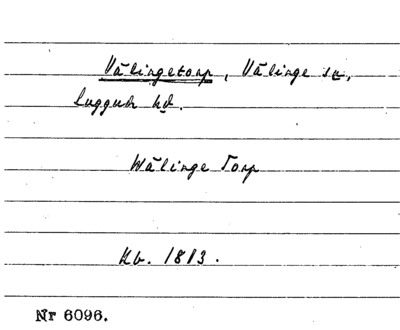 Välingetorp, Välinge sn,
Luggude hd.
Wälinge Torp
Kb. 1813.
Nr 6096.